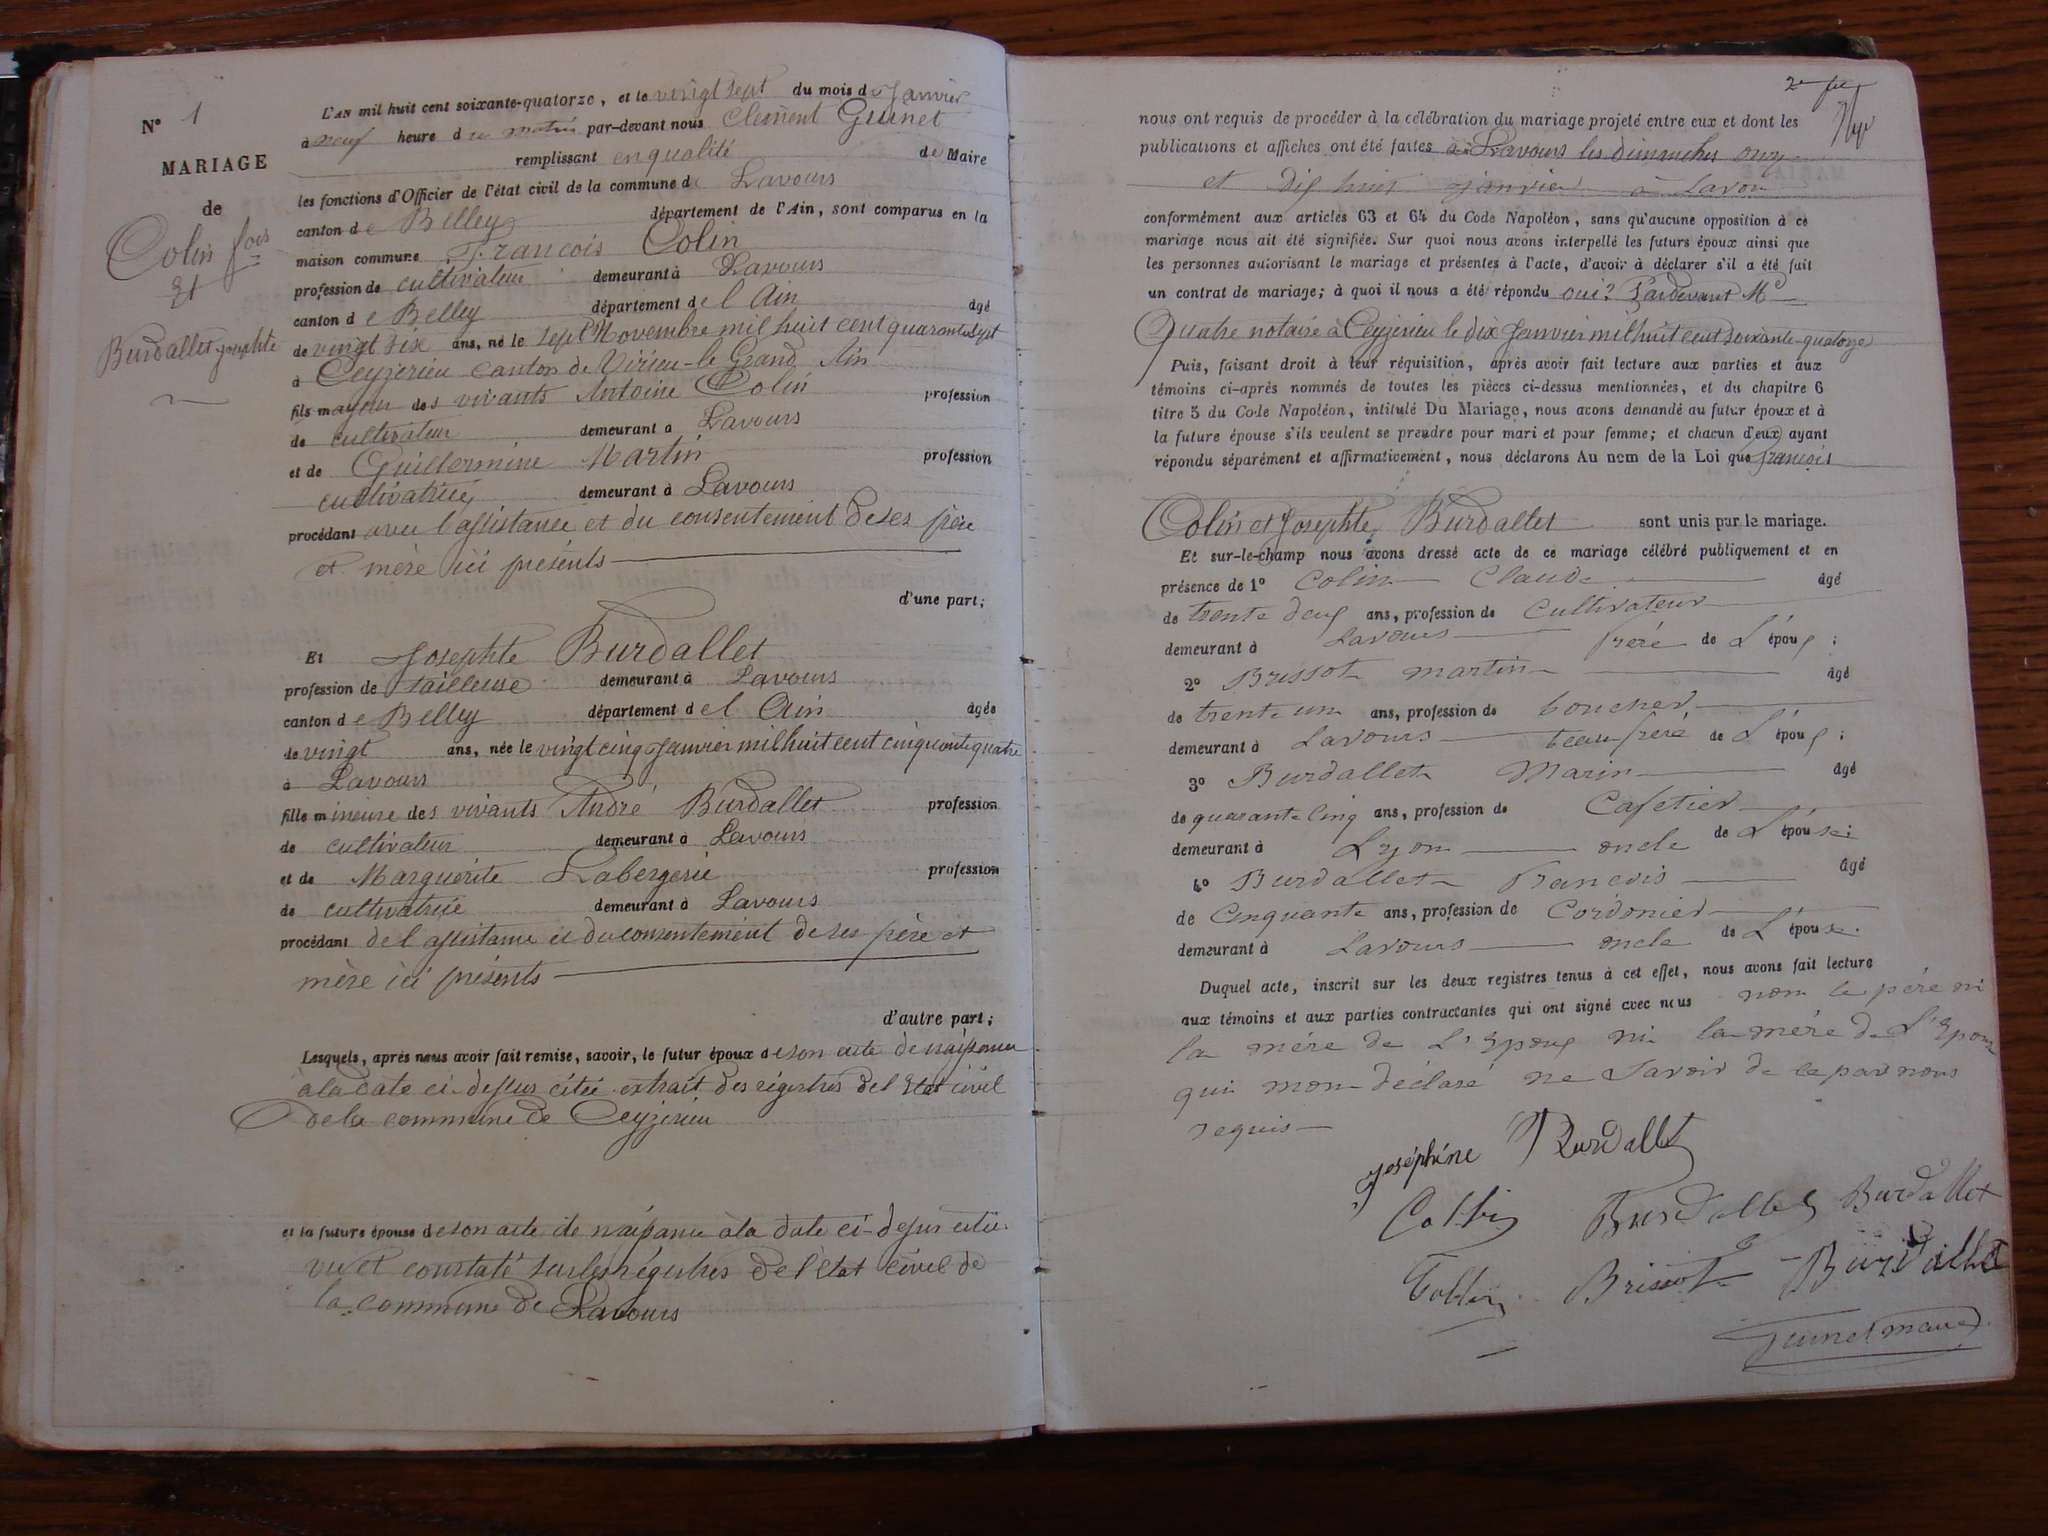 N° 1
MARIAGE
de
Colin fois
Et
Burdallet Josephte
L'AN mil huit cent soixante-quatorze, et le vingt sept du mois de Janvier
à neuf heure du matin par-devant nous Clément Guinet
remplissant en qualité de Maire
les fonctions d'Officier de l'état civil de la commune de Lavours
canton de Belley département de l'Ain, sont comparus en la
maison commune François Colin
profession de cultivateur demeurant à Lavours
canton de Belley département de l Ain âgé
de vingt six ans, né le sept Novembre mil huit cent quarante sept
à Ceyzerieu canton de Virieu-le Grand Ain
fils majeur des vivants Antoine Colin profession
de cultivateur demeurant à Lavours
et de Guillermine Martin profession
cultivatrice demeurant à Lavours
procédant avec l'assistance et du consentement de ses père
et mère ici présents
d'une part;
Et Josephte Burdallet
profession de tailleuse demeurant à Lavours
canton de Belley département de l Ain âgée
de vingt ans, née le vingt cinq Janvier mil huit cent cinquante quatre
à Lavours
fille mineure des vivants André Burdallet profession
de cultivateur demeurant à Lavours
et de Marguerite Labergerie profession
de cultivatrice demeurant à Lavours
procédant de l assistance et du consentement de ses père et
mère ici présents
d'autre part;
Lesquels, après nous avoir fait remise, savoir, le futur époux de son acte de naissance
à la date ci-dessus citée extrait des régistres de l Etat civil
de la commune de Ceyzerieu
et la future épouse de son acte de naissance à la date ci-dessus citée
vu et constaté sur les régistres de l'état civil de
la commune de Lavours
2e
nous ont requis de procéder à la célébration du mariage projeté entre eux et dont les
publications et affiches ont été faites à Lavours les dimanches onze
et dix huit janvier à Lavou
conformément aux articles 63 et 64 du Code Napoléon, sans qu'aucune opposition à ce
mariage nous ait été signifiée. Sur quoi nous avons interpellé les futurs époux ainsi que
les personnes autorisant le mariage et présentes à l'acte, d'avoir à déclarer s'il a été fait
un contrat de mariage; à quoi il nous a été répondu oui? Pardevant Me
Quatre notaire à Ceyzerieu le dix Janvier mil huit cent soixante-quatorze
Puis, faisant droit à leur réquisition, après avoir fait lecture aux parties et aux
témoins ci-après nommés de toutes les pièces ci-dessus mentionnées, et du chapitre 6
titre 5 du Code Napoléon, intitulé Du Mariage, nous avons demandé au futur époux et à
la future épouse s'ils veulent se prendre pour mari et pour femme; et chacun d'eux ayant
répondu séparément et affirmativement, nous déclarons Au nom de la Loi que françois
Colin et Josephte Burdallet sont unis par le mariage.
Et sur-le-champ nous avons dressé acte de ce mariage célébré publiquement et en
présence de 1° Colin Claude âgé
de trente deux ans, profession de Cultivateur
demeurant à Lavours frère de L'époux;
2° Brissot martin âgé
de trente un ans, profession de boucher
demeurant à Lavours beau frère de L'époux;
3° Burdallet Marin âgé
de quarante Cinq ans, profession de Cafetier
demeurant à Lyon oncle de L'épouse;
4° Burdallet Francois âgé
de Cinquante ans, profession de Cordonier
demeurant à Lavours oncle de L'épouse.
Duquel acte, inscrit sur les deux registres tenus à cet effet, nous avons fait lecture
aux témoins et aux parties contractantes qui ont signé avec nous non le père ni
la mère de L'Epoux ni la mère de L'Epouse
qui mon déclaré ne Savoir de ce par nous
requis
Joséphine Burdallet
Collin Burdallet Burdallet
Collin Brissot Burdallet
Guinet maire